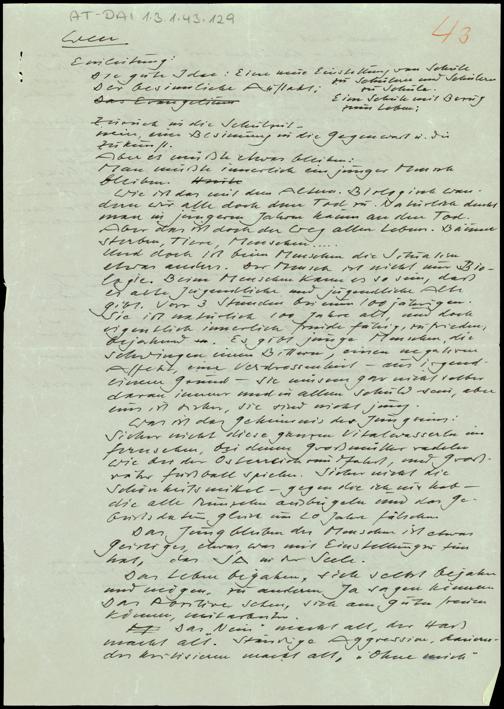 AT-DAI 1.3.1.43.129
43
Einleitung:
Die gute Idee: Eine neue Einstellung von Schule
zu Schülern und Schülern
Der besinnliche Auftakt;
zu Schule.
Das Evangelium
Eine Schule mit Bezug
zum Leben;
Zurück in die Schulzeit -
nein, eine Besinnung in die Gegenwart u. die
Zukunft.
Aber es müßte etwas bleiben:
Man müßte innerlich ein junger Mensch
bleiben.
Wie ist das mit dem Altern. Biologisch wan-
dern wir alle doch dem Tod zu. Natürlich denkt
man in jüngeren Jahren kaum an den Tod.
Aber das ist doch der Weg allen Lebens. Bäume
sterben, Tiere, Menschen.....
Und doch ist beim Menschen die Situation
etwas anders. Der Mensch ist nicht nur Bio-
logie. Beim Menschen kann es so sein, daß
es alte Jugendliche und jugendliche Alte
gibt. Vor 3 Stunden bei einer 100 jährigen.
Sie ist natürlich 100 Jahre alt, und doch
eigentlich innerlich freude fähig, zufrieden,
bejahend. Es gibt junge Menschen, die
schwingen einen Bittern, einen negativen
Affekt, eine Verdrossenheit - aus irgend
einem Grund - sie müssen gar nicht selber
daran immer und in allem schuld sein, aber
eins ist sicher, sie sind nicht jung.
Was ist das Geheimnis des Jungseins:
Sicher nicht diese ganzen Vitalwasserln im
Fernsehen, bei denen Großmütter radeln
wie bei der Österreichrundfahrt, und Groß-
väter Fußball spielen. Sicher nicht die
Schönheitsmittel - gegen die ich nix hab -
die alle Runzeln ausbügeln und das Ge-
burtsdatum gleich um 20 Jahre fälschen
Das Jungbleiben des Menschen ist etwas
Geistiges, etwas, was mit Einstellungen zu tun
hat, das JA in der Seele.
Das Leben bejahen, sich selbst bejahen
und mögen, zu anderen Ja sagen können
Das Positive sehen, sich am Guten freuen
können, mitarbeiten.
Das "Nein" macht alt, der Haß
macht alt. Ständige Aggression, dauern-
des kritisieren macht alt, "Ohne mich"